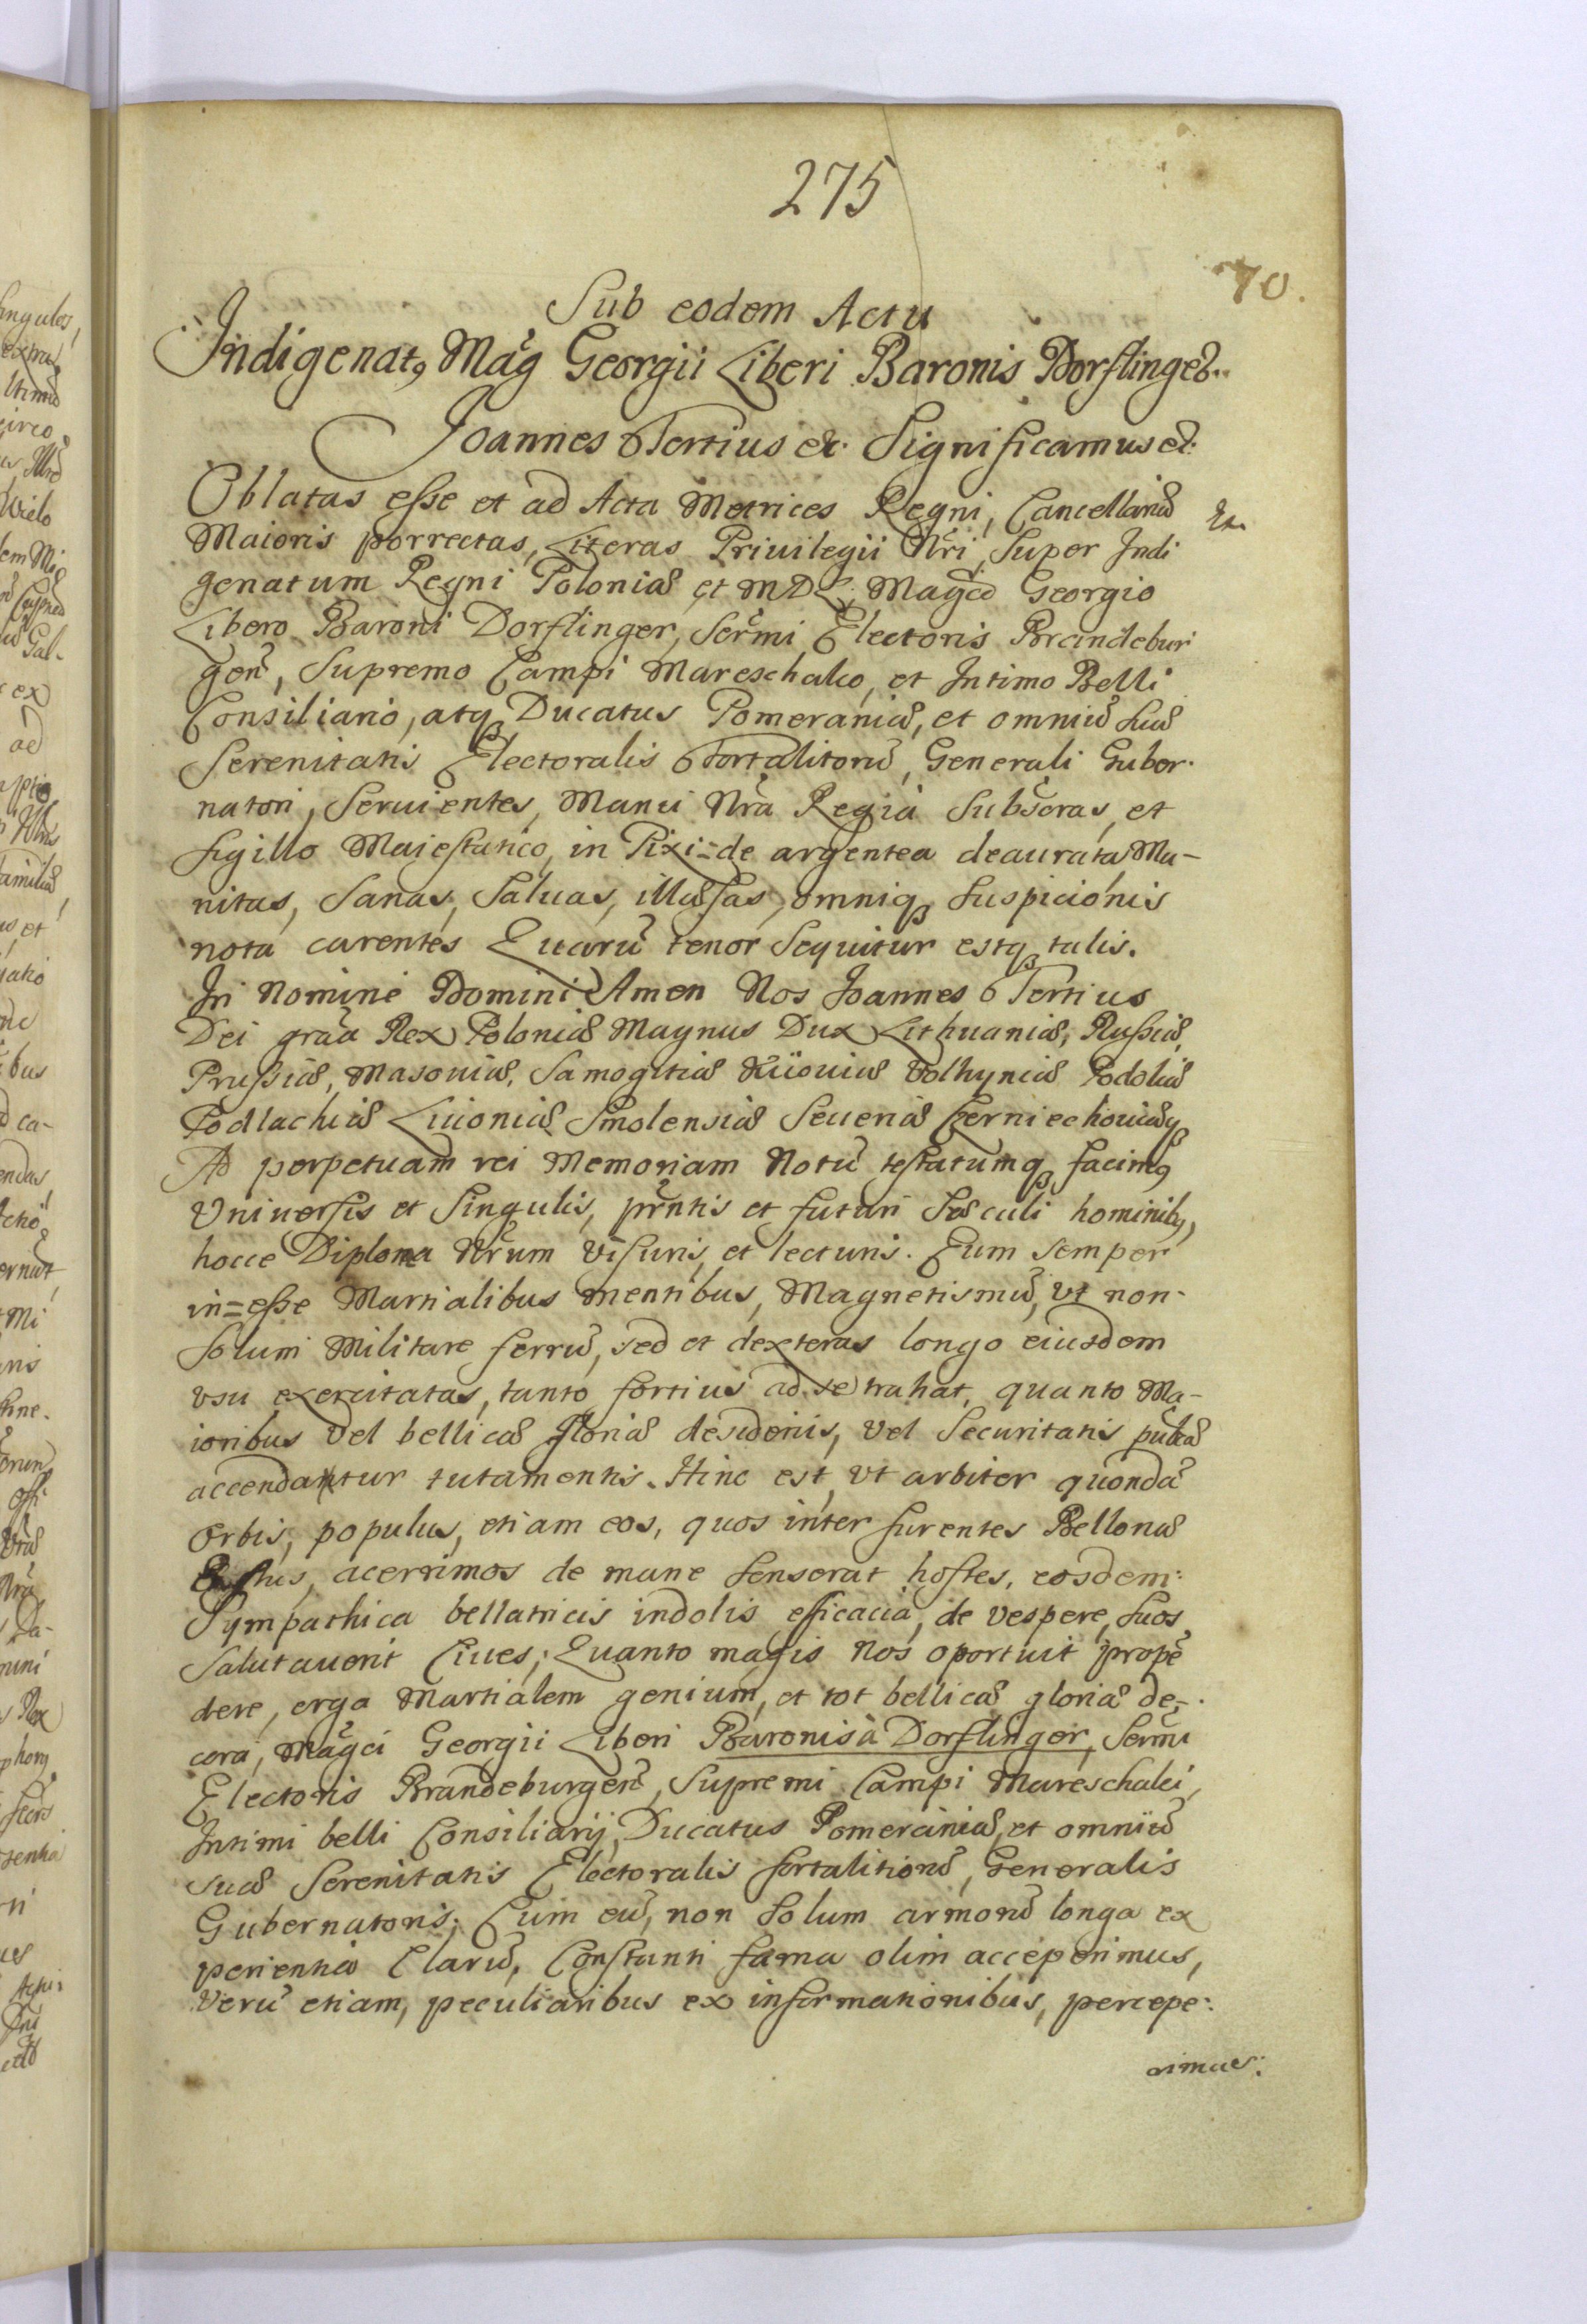 275
70.
Sub eodem Actu
Indigenatꝰ Mag̃ Georgii Liberi Baronis Dorflinger..
Joannes Tertius etc. Significamus etc.
Oblatas esse et ad Acta Metrices Regni, Cancellariæ
Maioris porrectas, Literas Privilegii Nr̃i, Super Indi
genatum Regni Poloniæ et MDL, Magco Georgio
Libero Baroni Dorflinger, Serm̃i Electoris Brandebur
gen̄, Supremo Campi Mareschalco, et Intimo Belli
Consiliario, atqꝫ Ducatus Pomeraniæ, et omniũ suæ
Serenitatis Electoralis Fortalitorũ, Generali Guber.
natori, Seruientes, Manu Nr̃a Regia Subscr̃as, et
sigillo Maiestatico, in Pixi=de argentea deaurata Mu-
nitas, Sanas, Saluas, illæsas, omniqꝫ suspicionis
nota carentes Quarũ tenor Sequitur estqꝫ talis.
In Nomine Domini Amen Nos Joannes Tertius
Dei gr̃aa Rex Poloniæ Magnus Dux Lithuaniæ, Russiæ,
Prussiæ, Masouiæ, Samogitiæ Kiiouiæ Volhyniæ Podoliæ
Podlachiæ Liuoniæ Smolensiæ Seueriæ Czerniechouiæqꝫ
Ad perpetuam rei Memoriam Notũ testatumqꝫ facimꝰ
Vniuersis et Singulis, prñtis et futuri Sæculi hominibꝰ,
hocce Diploma Nr̃um Visuris, et lecturis. Cum semper
in=esse Martialibus mentibus, Magnetismũ, Vt non
solum Militare ferrũ, sed et dexteras longo eiusdem
vsu exercitatas, tanto fortius ad se trahat, quanto Ma-
ioribus Vel bellicæ Gloriæ desideriis, Vel Securitatis publicæ
accendantur tutamentis. Hinc est, Vt arbiter quondã
Orbis, populus, etiam eos, quos inter furentes Bellonæ
Æstus, acerrimos de mane senserat hostes, eosdem
Sympathica bellatricis indolis efficacia, de vespere, suos
Salutauerit Ciues; Quanto magis Nos oportuit propẽ
dere, erga Martialem genium, et tot bellicæ gloriæ de-
cora, Mag̃ci Georgii Liberi Baronis à Dorflinger, Serm̃i
Electoris Brandeburgen̄, Supremi Campi Mareschalci,
Intimi belli Consiliarij, Ducatus Pomeraniæ, et omniũ
suæ Serenitatis Electoralis fortalitiorũ, Generalis
Gubernatoris; Cum eũ, non solum armorũ longa ex
perientia Clarũ, Constanti fama olim acceperimus,
Verũ etiam, peculiaribus ex informationibus, percepe:
rimus: